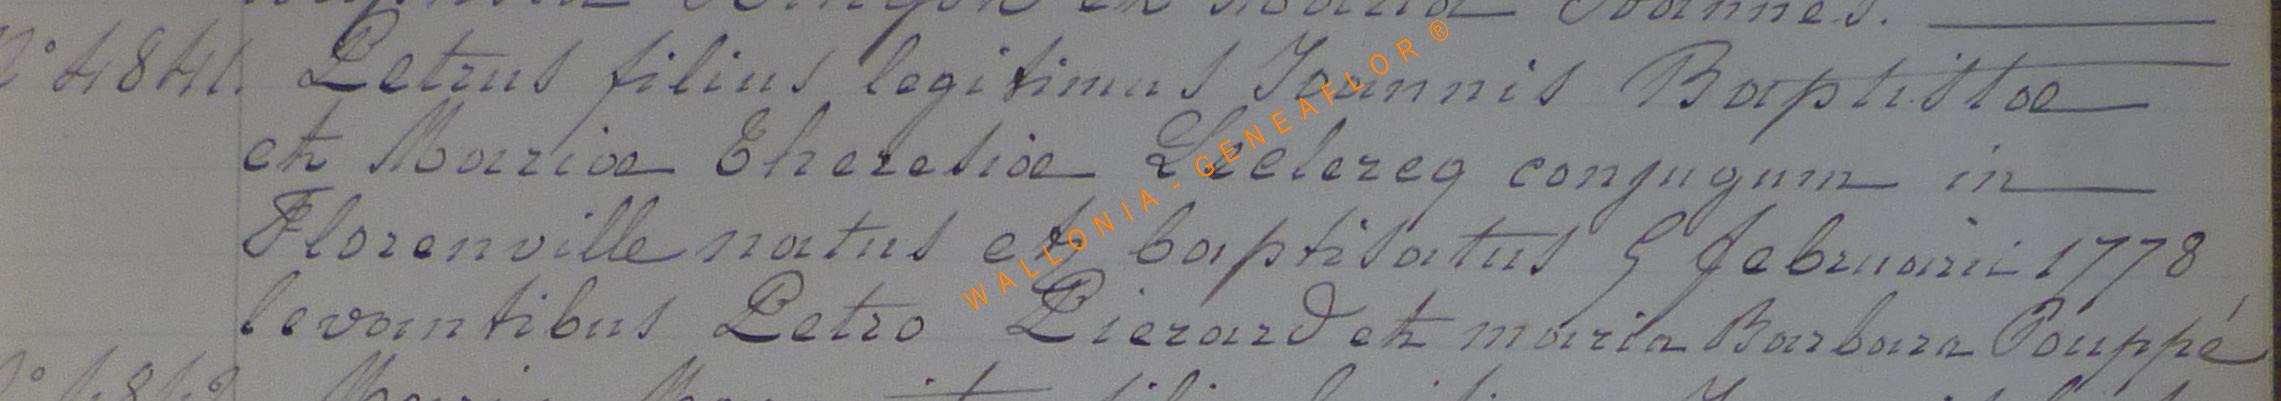 et Joannes.
N° 4841. Petrus filius legitimus Joannis Baptistae
et Mariae Theresiae Leclercq conjugum in
Florenville natus et baptisatus 5 februarii 1778
levantibus Petro Pierard et maria Barbara Pouppé
WALLONIA - GENEAFLOR ®